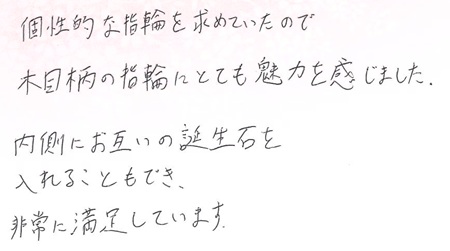 個性的な指輪を求めていたので
木目柄の指輪にとても魅力を感じました.
内側にお互いの誕生石を
入れることもでき、
非常に満足しています.